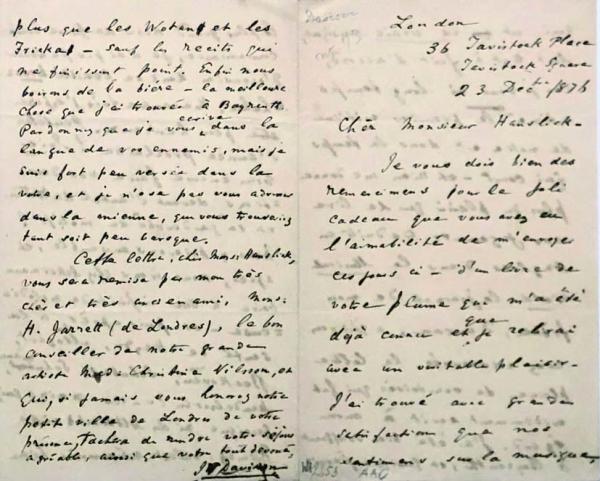 London
36 Tavistock Place
Tavistock Square
23 Dec. 1876
Chèr Monsieur Hanslick –
Je vous dois bien des
remercimens pour le joli
cadeau que vous avez eu
l'aimabilité de m'envoyer
ces jours ci – d'un livre de
votre plume qui m'a été
déjà connu et que je relirai
avec un veritable plaisir –
J'ai trouvé avec grande
satisfaction que nos
sentimens sur la musique,
plus que les Wotans et les
Frickas – sauf les recits qui
ne finissent point. Enfin nous
boirons de la bière – la meilleure
chose que j'ai trouvée à Bayreuth.
Pardonnez que je vous ecrive dans la
langue de vos ennemis, mais je
suis fort peu versée dans la
votre, et je n'ose pas vous adresser
dans la mienne, que vous trouveriez
tant soit peu baroque.
Cette lettre, chèr Mons: Hanslick,
vous sera remise par mon très
chèr et très ancien ami, Mons:
H. Jarrett (de Londres), le bon
conseiller de notre grande
artist Mad: Christine Nilsson, et
qui, si jamais vous honorez notre
petit ville de Londres de votre
présence, tachera de rendre votre séjour
agréable, ainsi que votre tout devoué,
J W Davison